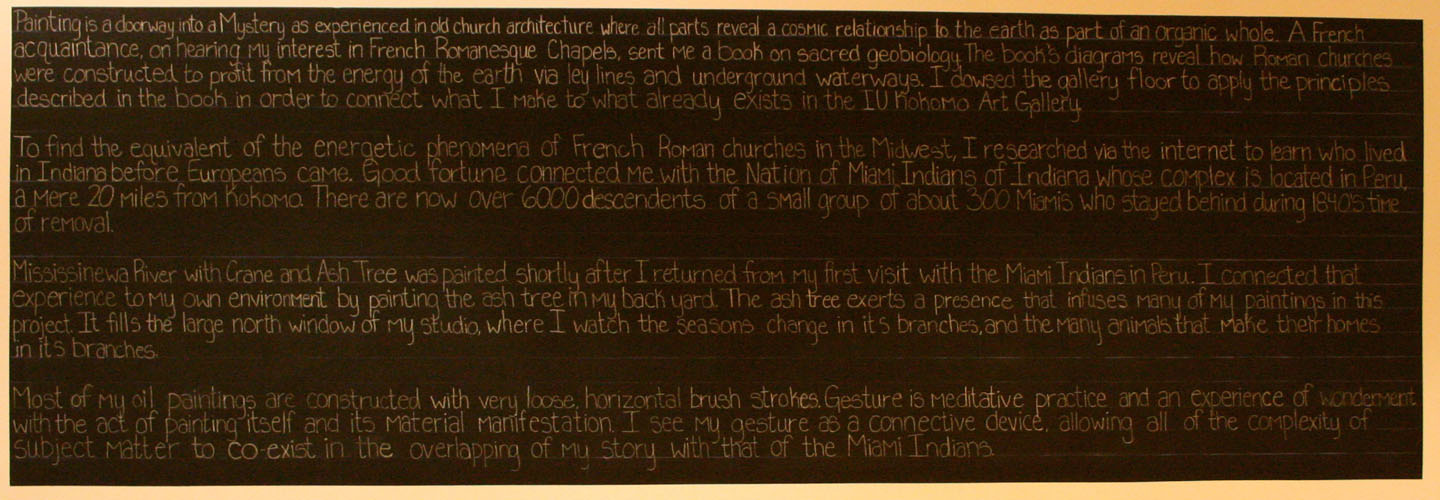 Painting is a doorway into a Mystery as experienced in old church architecture where all parts reveal a cosmic relationship to the earth as part of an organic whole. A French
acquaintance, on hearing my interest in French Romanesque Chapels, sent me a book on sacred geobiology. The book's diagrams reveal how Roman churches
were constructed to profit from the energy of the earth via ley lines and underground waterways. I dowsed the gallery floor to apply the principles
described in the book in order to connect what I make to what already exists in the IU Kokomo Art Gallery.
To find the equivalent of the energetic phenomena of French Roman churches in the Midwest, I researched via the internet to learn who lived
in Indiana before Europeans came. Good fortune connected me with the Nation of Miami Indians of Indiana whose complex is located in Peru,
a mere 20 miles from Kokomo. There are now over 6000 descendents of a small group of about 300 Miamis who stayed behind during 1840s time
of removal.
Mississinewa River with Crane and Ash Tree was painted shortly after I returned from my first visit with the Miami Indians in Peru. I connected that
experience to my own environment by painting the ash tree in my back yard. The ash tree exerts a presence that infuses many of my paintings in this
project. It fills the large north window of my studio, where I watch the seasons change in its branches, and the many animals that make their homes
in its branches.
Most of my oil paintings are constructed with very loose, horizontal brush strokes. Gesture is meditative practice and an experience of wonderment
with the act of painting itself and its material manifestation. I see my gesture as a connective device, allowing all of the complexity of
subject matter to co-exist in the overlapping of my story with that of the Miami Indians.